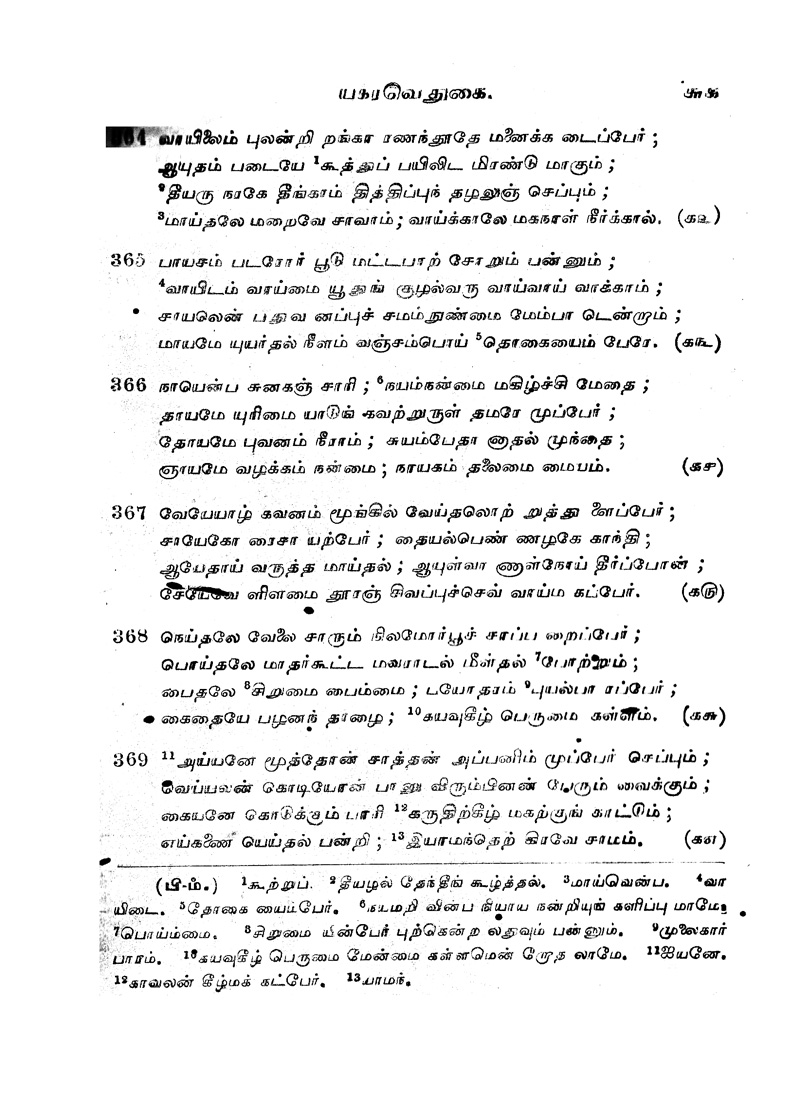 யகரவெதுகை. ௬௯
364 வாயிலைம் புலன்றி றங்கா ரணந்தூதே மணைக்க டைப்பேர் ;
ஆயுதம் படையே ¹கூத்துப் பயிலிட மிரண்டு மாகும் ;
²தீயரு நரகே தீங்காம் தித்திப்புந் தழலுஞ் செப்பும் ;
³மாய்தலே மறைவே சாவாம் ; வாய்க்காலே மகநாள் நீர்க்கால். (௧௨)
365 பாயசம் படரோர் பூடு மட்டபாற் சோறும் பண்ணும் ;
⁴வாயிடம் வாய்மை யூனுங் குழல்வரு வாய்வாய் வாக்காம் ;
சாயலென் பதுவ னப்புச் சமம்நுண்மை மேம்பா டென்றும் ;
மாயமே யுயர்தல் நீளம் வஞ்சம்பொய் ⁵தொகையைம் பேரே. (௧௩)
366 நாயென்ப சுனகஞ் சாரி ; ⁶நயம்நன்மை மகிழ்ச்சி மேதை ;
தாயமே யுரிமை யாடுங் கவற்றுருள் தமரே முப்பேர் ;
தோயமே புவனம் நீராம் ; சுயம்பேதா னாதல் முந்தை ;
ஞாயமே வழக்கம் நன்மை ; நாயகம் தலைமை மைபம். (௧௪)
367 வேயேயாழ் கவனம் மூங்கில் வேய்தலொற் றுத்து ளைப்பேர் ;
சாயேகோ ரைசா யற்பேர் ; தையல்பெண் ணழகே காந்தி ;
ஆயேதாய் வருத்த மாய்தல் ; ஆயுள்வா ணாள்நோய் தீர்ப்போன் ;
சேயேசேவ் ளிளமை தூரஞ் சிவப்புச்செவ் வாய்ம கட்பேர். (௧௫)
368 நெய்தலே வேலை சாரும் நிலமோர்பூச் சாப்ப றைப்பேர் ;
பொய்தலே மாதர்கூட்ட மவராடல் மீள்தல் ⁷போற்றும் ;
பைதலே ⁸சிறுமை பைம்மை ; பயோதரம் ⁹புயல்பா ரப்பேர் ;
கைதையே பழனந் தாழை ; ¹⁰கயவுகீழ் பெருமை கள்ளம். (௧௬)
369 ¹¹அய்யனே மூத்தோன் சாத்தன் அப்பனிம் முப்பேர் செப்பும் ;
வெய்யவன் கொடியோன் பானு விரும்பினன் பேரும் வைக்கும் ;
கையனே கொடுக்கும் பாரி ¹²கருதிற்கீழ் மகற்குங் காட்டும் ;
எய்கணை யெய்தல் பன்றி ; ¹³இயாமந்தெற் கிரவே சாமம். (௧௭)
(பி-ம்.) ¹கூற்றுப். ²தீயழல் தேந்தீங் கூழ்த்தல். ³மாய்வென்ப. ⁴வா
யிடை. ⁵தோகை யைம்பேர். ⁶நயமறி வின்ப நியாய நன்றியுங் களிப்பு மாமே.
⁷பொய்ம்மை. ⁸சிறுமை யின்பேர் புற்கென்ற லதுவும் பண்னும். ⁹முலைகார்
பாரம். ¹⁰கயவுகீழ் பெருமை மேன்மை கள்ளமென் றோத லாமே. ¹¹ஐயனே.
¹²காவலன் கீழ்மக் கட்பேர். ¹³யாமந்.